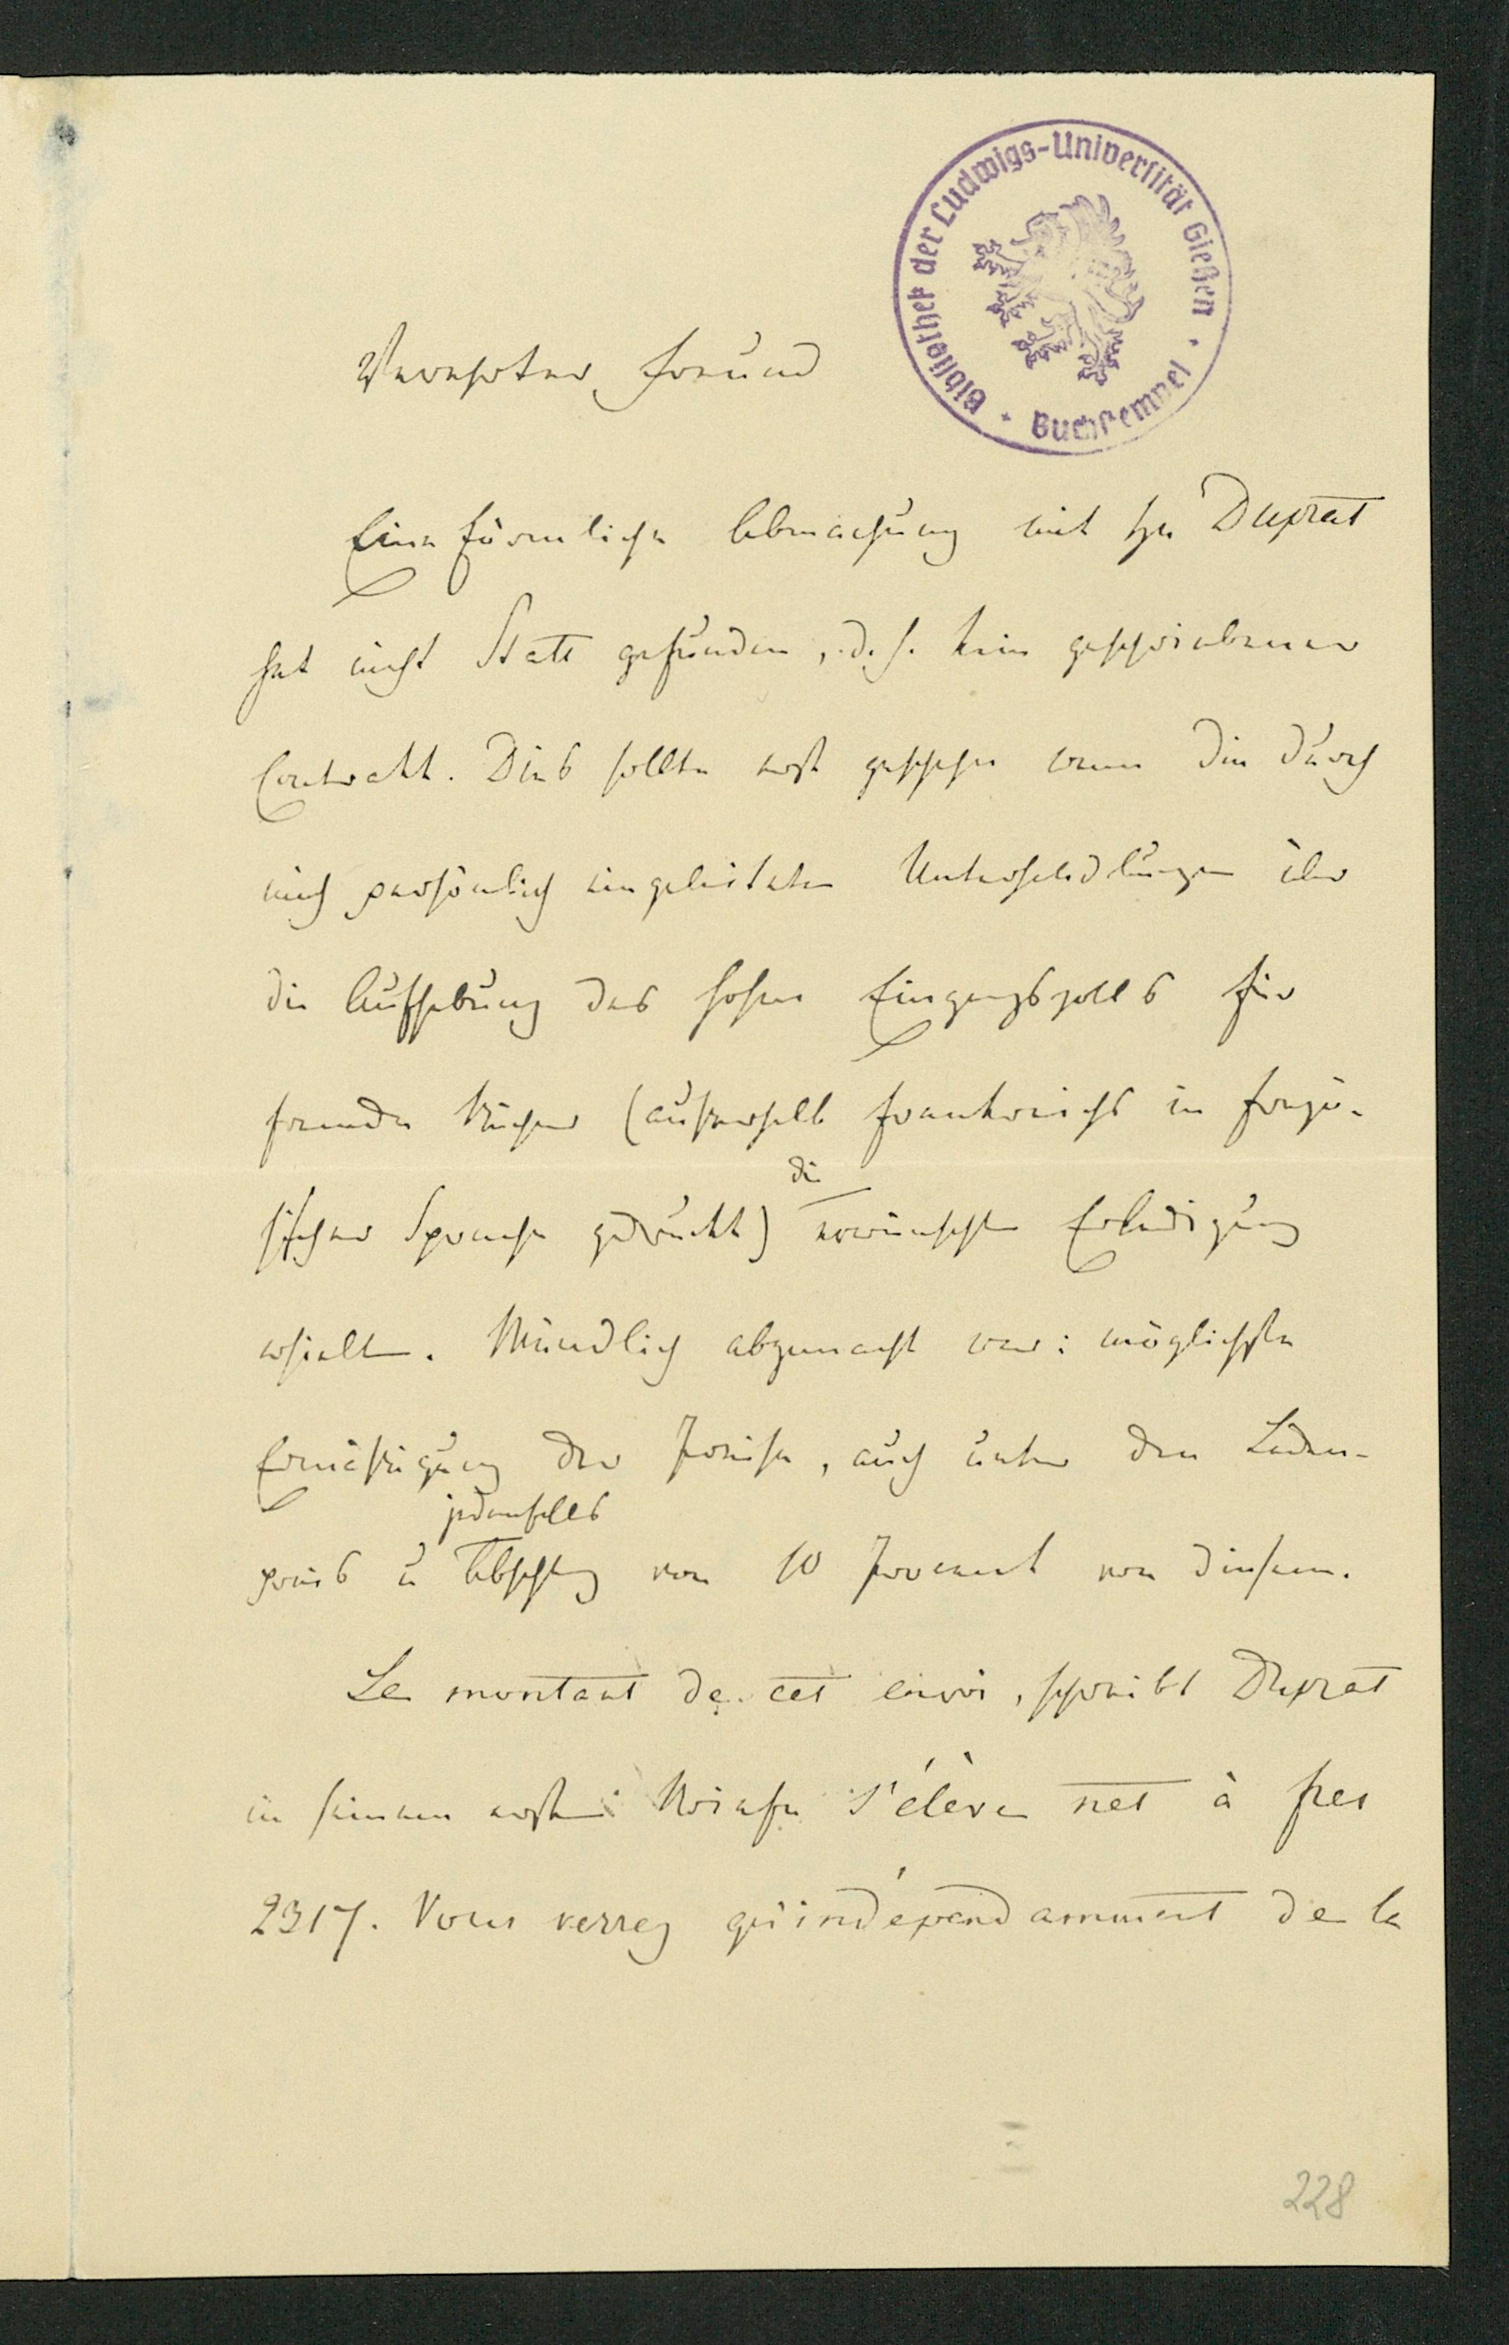 Bibliothek der Ludwigs-Universität Gießen
Buchstempel
Verehrter Freund
Eine förmliche Abmachung mit Hn Duprat
hat nicht Statt gefunden, d. h. kein geschriebener
Contrakt. Dies sollte erst geschehen wenn die durch
mich persönlich eingeleiteten Unterhandlungen über
die Aufhebung des hohen Eingangszolls für
fremde Bücher (außerhalb Frankreichs in franzö-
die
sischer Sprache gedruckt) erwünschte Erledigung
erhielten. Mündlich abgemacht war: möglichste
Ermäßigung der Preise, auch unter den Laden-
jedenfalls
preis u Abschlag von 10 Procent von diesem.
Le montant de cet envoi, schreibt Duprat
in seinem ersten Briefe s'élève net à frcs
2317. Vous verrez qu'indépendamment de la
228